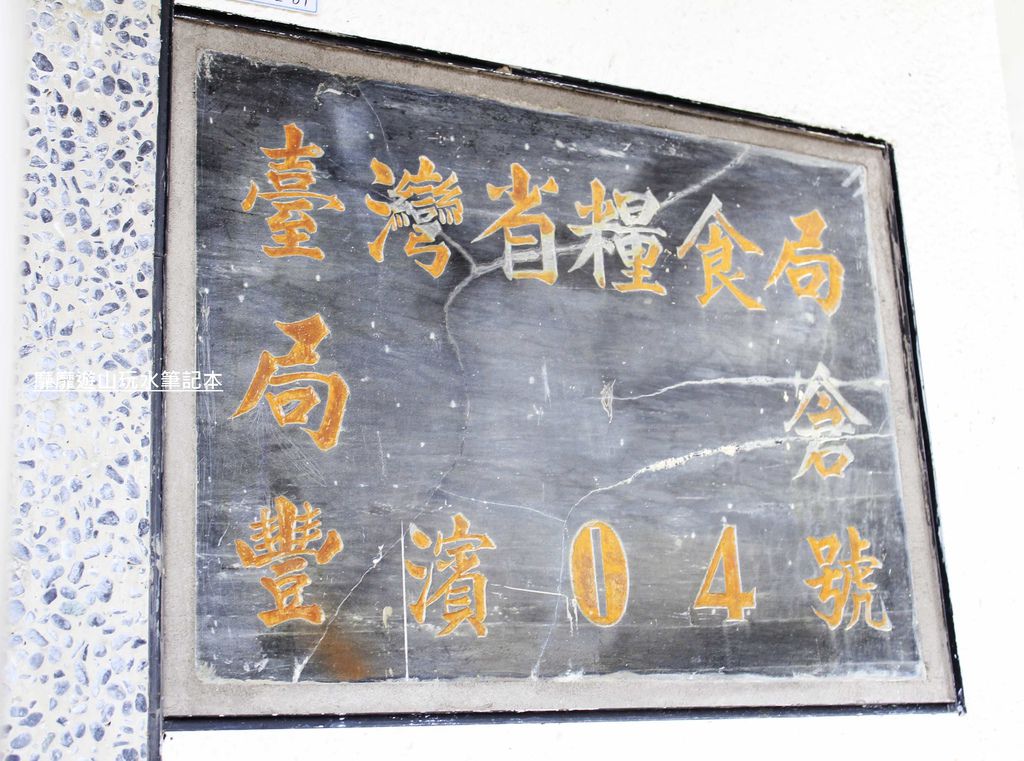 臺灣省糧食局
局 倉
豐濱04號
龎龎遊山玩水筆記本